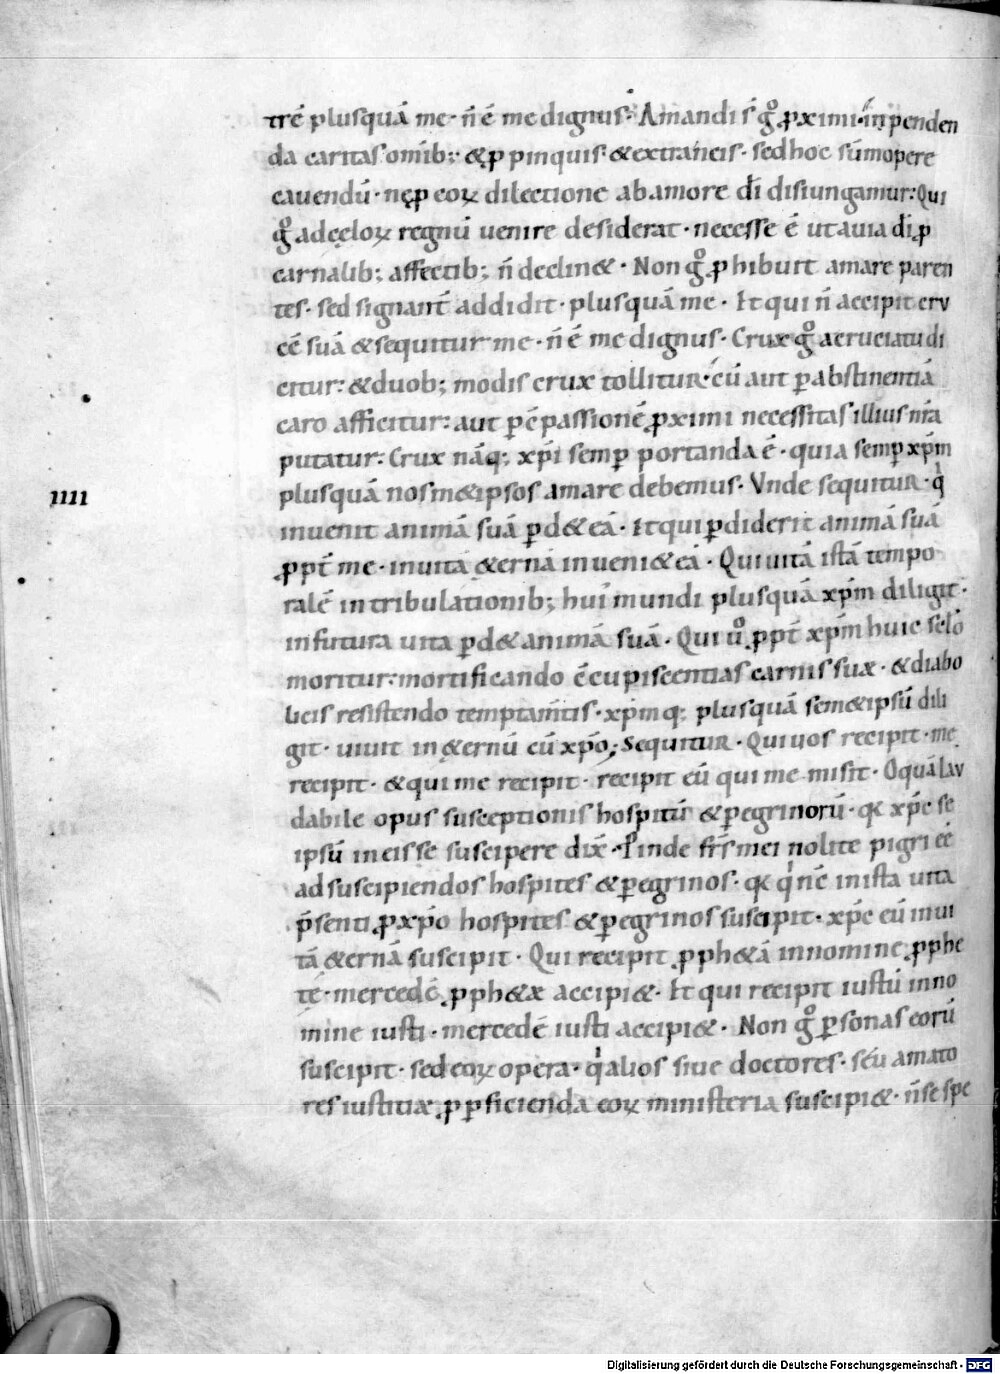 trē plusquā me· n̄ ē me dignus· Amandi s̄ gͦ ꝓximi· inpenden
da caritas omib; & ꝓpinquis· & extraneis· sed hoc sūmopere
cauendū· ne ꝓ eoꝝ dilectione ab amore dī disiungamur: Qui
gͦ ad cęloꝝ regnū uenire desiderat· necesse ē ut a uia dī ꝓ
carnalib; affectib; n̄ declin&· Non gͦ ꝓhibuit amare paren
tes· sed signant̄ addidit· plusquā me· Et qui n̄ accipit cru
cē suā & sequitur me· n̄ ē me dignus· Crux gͦ a cruciatu di
citur: & duob; modis crux tollitur· cū aut ꝑ abstinentiā
caro afficitur: aut ꝑ c̄passionē ꝓximi necessitas illius nr̄a
putatur: Crux nāq; xp̄i semꝑ portanda ē· quia semꝑ xp̄m
plusquā nosm&ipsos amare debemus· Vnde sequitur· qͥ
inuenit animā suā ꝑd& eā· Et qui ꝑdiderit animā suā
ꝓpt̄ me· in uitā &ernā inueni& eā· Qui uitā istā tempo
ralē in tribulationib; hui' mundi plusquā xp̄m diligit·
in futura uita ꝑd& animā suā· Qui uͦ ꝓpt̄ xp̄m huic sc̄lo
moritur: mortificando c̄cupiscentias carnis suæ· & diabo
licis resistendo temptam̄tis· xp̄mq; plusquā sem&ipsū dili
git· uiuit in &ernū cū xp̄o; Sequitur· Qui uos recipit· me
recipit· & qui me recipit· recipit eū qui me misit· O quā lau
dabile opus susceptionis hospitū & ꝑegrinorū· qa xp̄c se
ipsū in eis se suscipere dix̄· Proinde frs̄ mei nolite pigri eē
ad suscipiendos hospites & ꝑegrinos· qa qͥ nc̄ in ista uita
p̄senti ꝓ xp̄o hospites & ꝑegrinos suscipit· xp̄c eū in ui
tā &ernā suscipit· Qui recipit ꝓph&ā in nomine ꝓphe
tę· mercedē ꝓph&æ accipi&· Et qui recipit iustū in no
mine iusti· mercedē iusti accipi&· Non gͦ ꝑsonas eorū
suscipit· sed eoꝝ opera· qͥ alios siue doctores· seu amato
res iustitiæ ꝓ ꝑficienda eoꝝ ministeria suscipi&· n̄ se spe
IIII
Digitalisierung gefördert durch die Deutsche Forschungsgemeinschaft - DFG